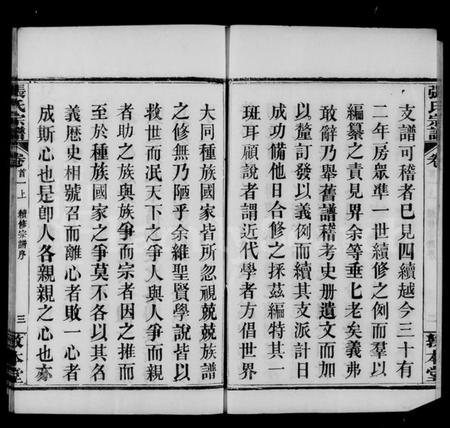 張氏宗譜
卷
敦本堂
支譜可稽者已見四續越今三十有
二年房眾準一世續修之例而羣以
編纂之責見畀余等垂七老矣義弗
敢辭乃舉舊譜稽考史册遺文而加
以釐訂發以義例而續其支派計日
成功備他日合修之採茲編特其一
斑耳顧說者謂近代學者方倡世界
大同種族國家皆所忽視兢兢族譜
之修無乃陋乎余維聖賢學說皆以
救世而泯天下之爭人與人爭而親
者助之族與族爭而宗者因之推而
至於種族國家之爭莫不各以其名
義歷史相號召而離心者敗一心者
成斯心也是卽人各親親之心也亦
張氏宗譜
卷首一上
續修宗譜序
三
敦本堂